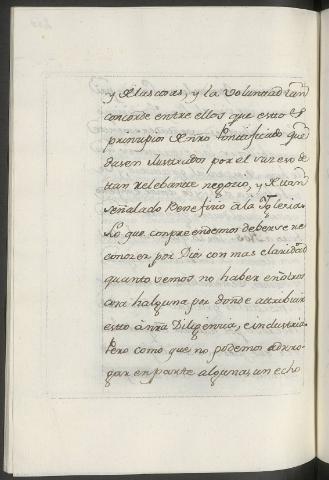 y de las coras, y la voluntad tan
concorde entre ellos que estos
prinzipios de nro Pontificado que
dasen ilustrados por el suzeso de
tan relebante negozio, y de tan
señalado Benefizio a la Iglesia.
Lo que conprendemos deberse re
conozer por Dios con mas claridad
quanto vemos no haber en
cosa halguna por donde attribuir
esto à nra Diligenzia, e industria
Pero como que no podemos adrro
gar en partte alguna, un echo